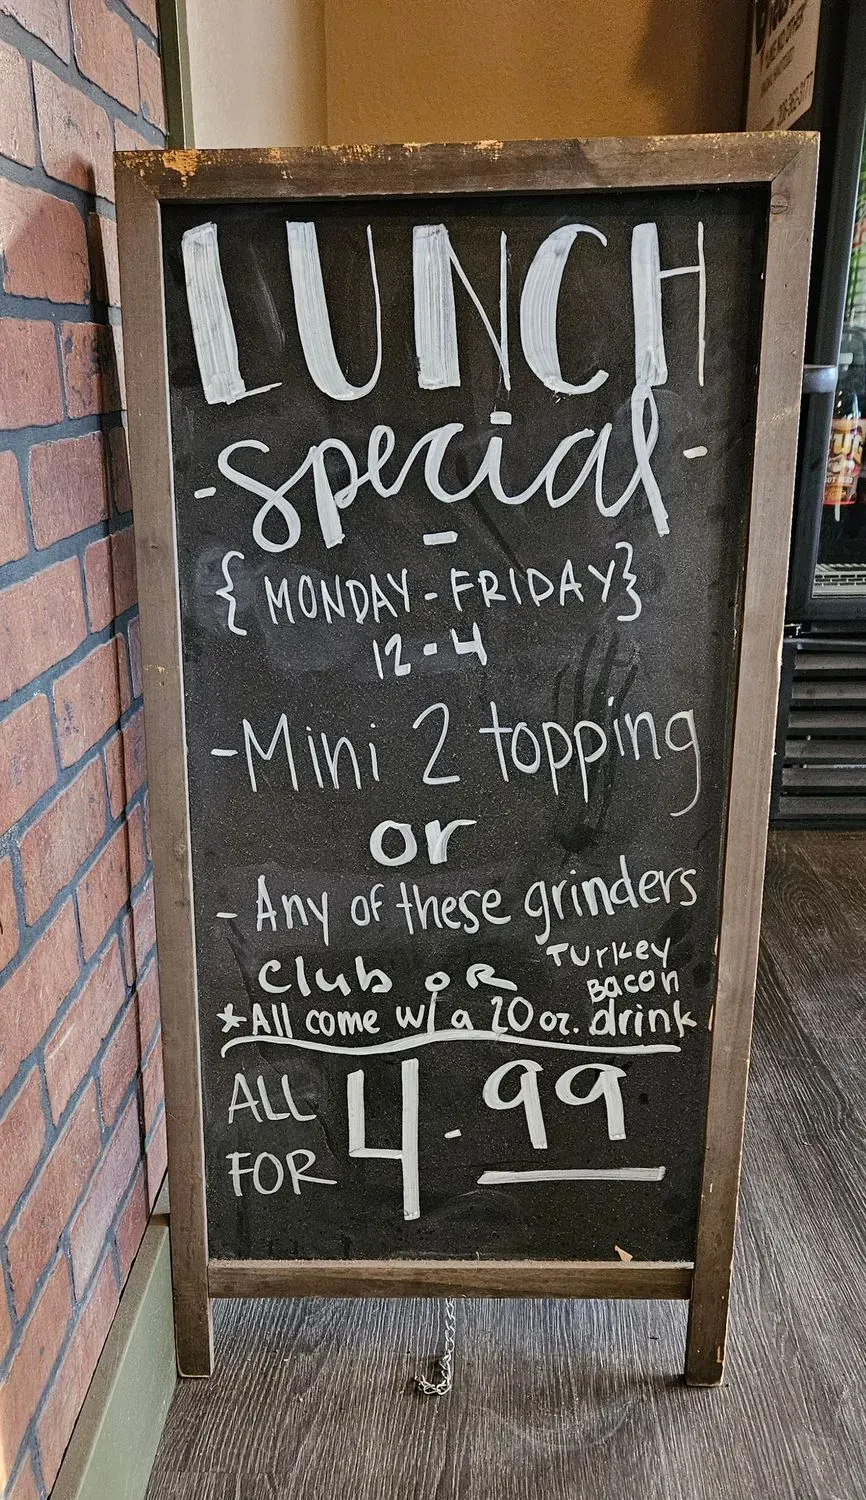 LUNCH
-special-
-
{MONDAY-FRIDAY}
12-4
-Mini 2 topping
or
- Any of these grinders
Club OR Turkey Bacon
*All come w/ a 20 oz. drink
ALL FOR 4.99